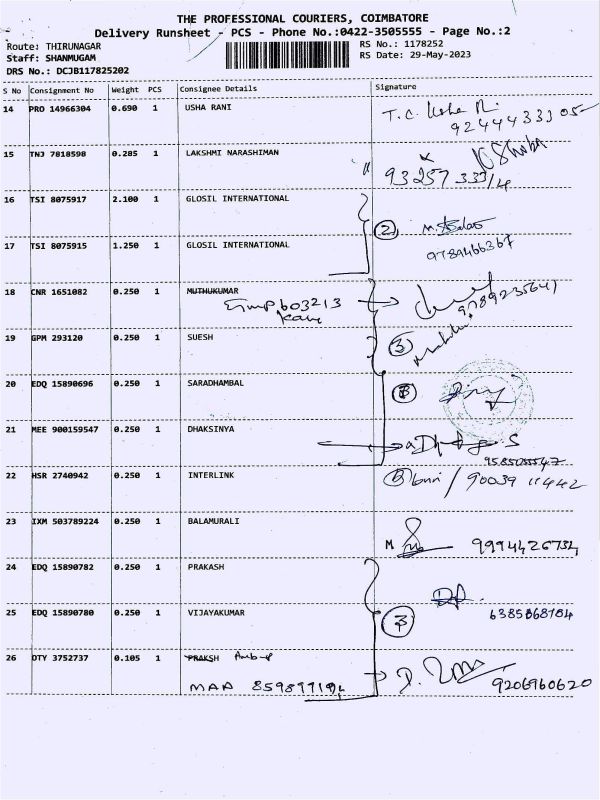 THE PROFESSIONAL COURIERS, COIMBATORE
Delivery Runsheet - PCS - Phone No.:0422-3505555 - Page No.:2
Route: THIRUNAGAR RS No.: 1178252
Staff: SHANMUGAM RS Date: 29-May-2023
DRS No.: DCJB117825202
S No Consignment No Weight PCS Consignee Details Signature
14 PRO 14966304 0.690 1 USHA RANI T.C. Usha
9244433305
15 TNJ 7818598 0.285 1 LAKSHMI NARASHIMAN
9325733314
16 TSI 8075917 2.100 1 GLOSIL INTERNATIONAL
2
17 TSI 8075915 1.250 1 GLOSIL INTERNATIONAL
9789466367
18 CNR 1651082 0.250 1 MUTHUKUMAR
603213 9789235641
19 GPM 293120 0.250 1 SUESH 3
20 EDQ 15890696 0.250 1 SARADHAMBAL
21 MEE 900159547 0.250 1 DHAKSINYA
9585055547
22 HSR 2740942 0.250 1 INTERLINK / 90039 11442
23 IXM 503789224 0.250 1 BALAMURALI
M 9994426734
24 EDQ 15890782 0.250 1 PRAKASH
25 EDQ 15890780 0.250 1 VIJAYAKUMAR 6385868184
26 DTY 3752737 0.105 1 PRAKSH
9206960620